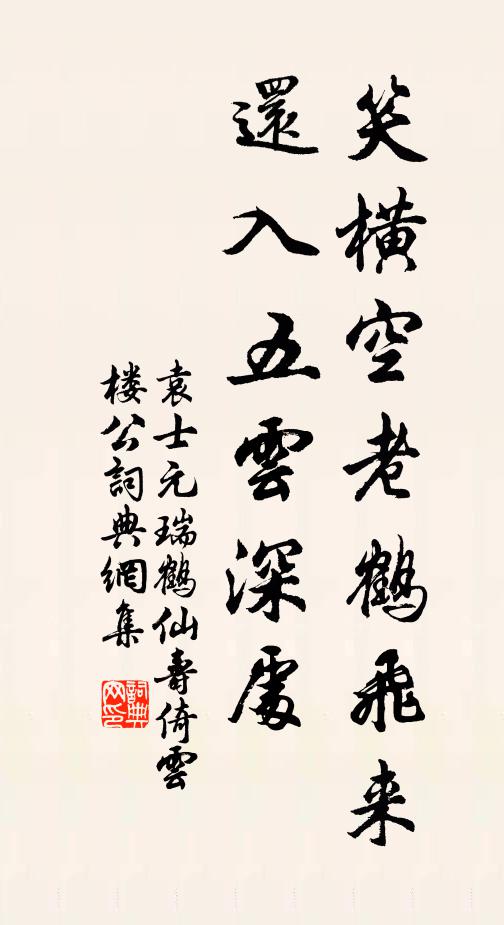 笑横空老鹤飛来
還入五雲深處
袁士元瑞鹤仙壽倚雲
楼公詞典網集
詞典网印